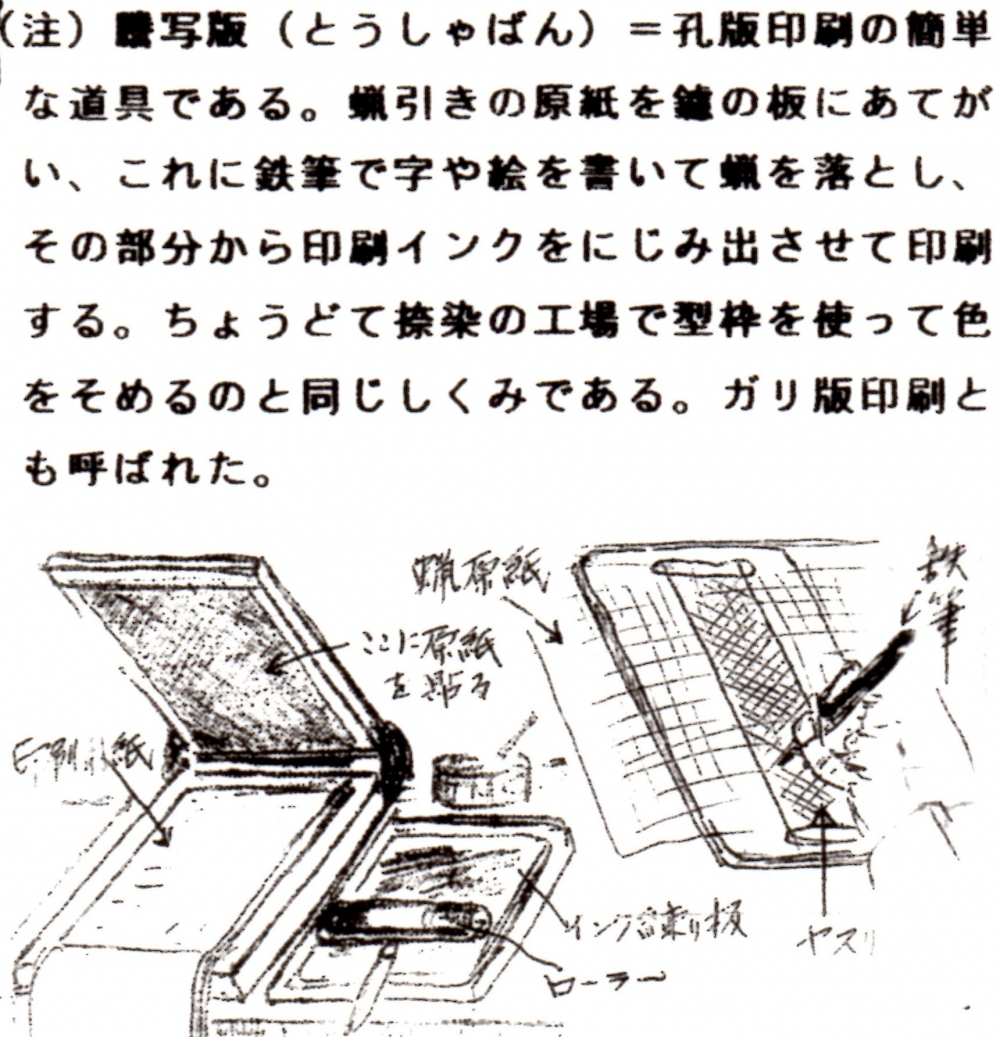 (注）謄写版（とうしゃばん）＝孔版印刷の簡単
な道具である。蝋引きの原紙を鑢の板にあてが
い、これに鉄筆で字や絵を書いて蝋を落とし、
その部分から印刷インクをにじみ出させて印刷
する。ちょうどて捺染の工場で型枠を使って色
をそめるのと同じしくみである。ガリ版印刷と
も呼ばれた。
蝋原紙
鉄筆
ここに原紙
を貼る
印刷用紙
インク練り板
ヤスリ
ローラー